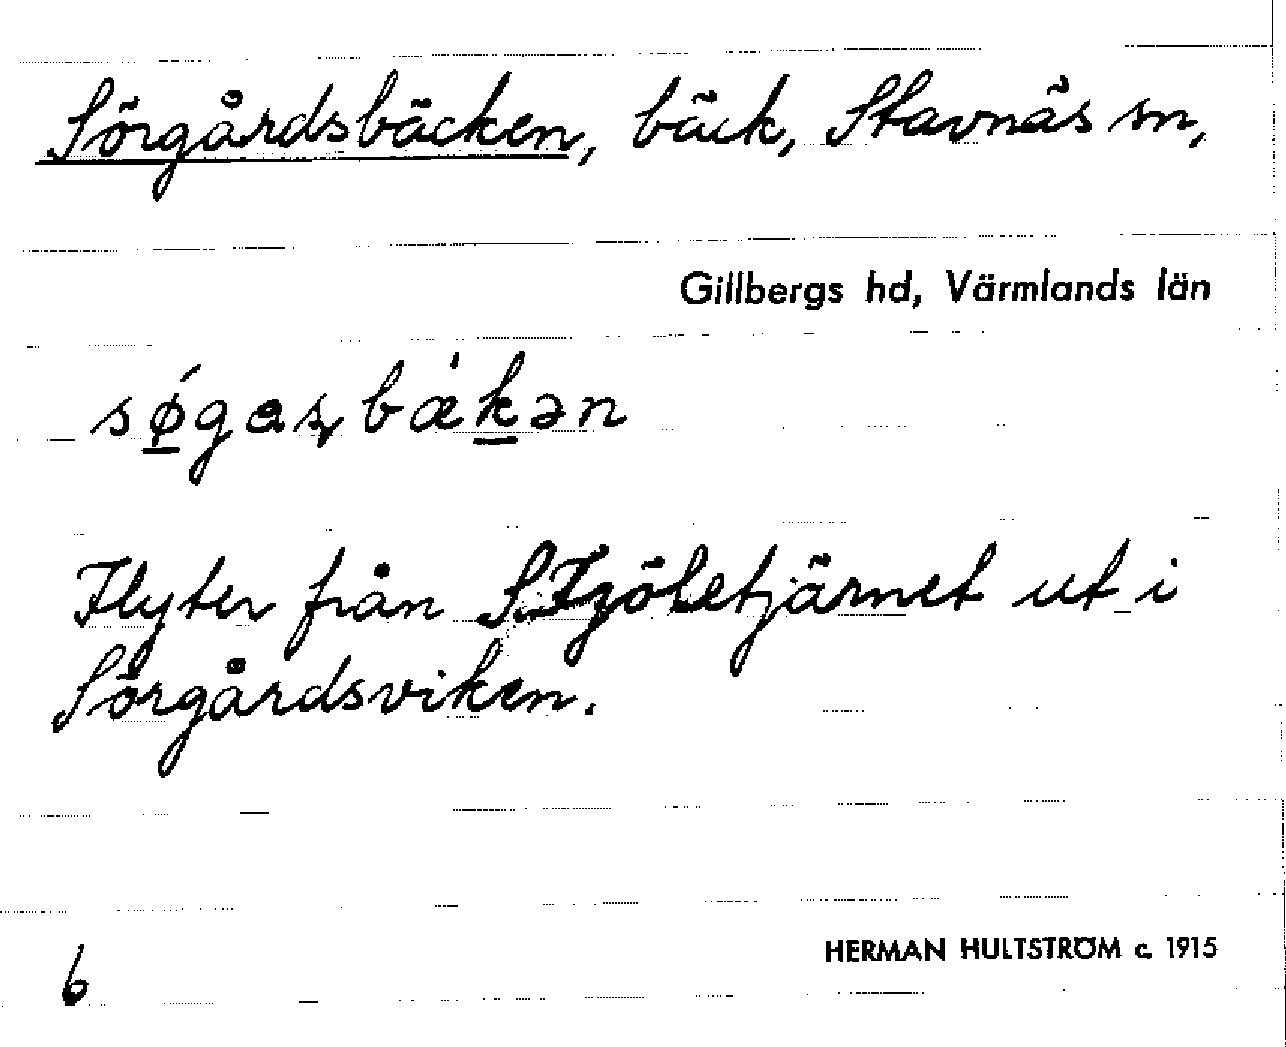 Sörgårdsbäcken, bäck, Stavnäs sn,
Gillbergs hd, Värmlands län
søgasbækən
Flyter från ut i
Sörgårdsviken.
HERMAN HULTSTRÖM c. 1915
6